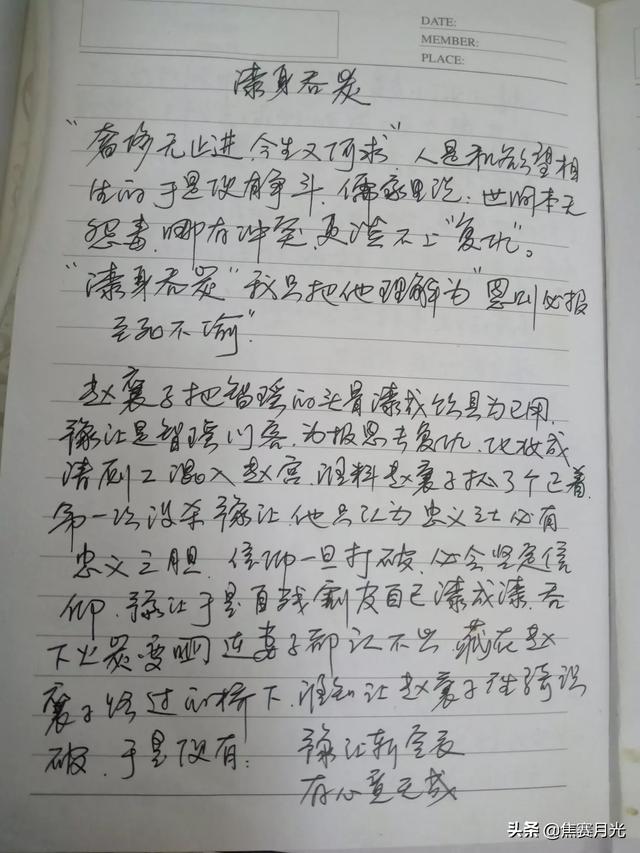 DATE:
MEMBER:
PLACE:
漆身吞炭
"奢侈无止进,今生又何求"人是和欲望相
生的于是没有争斗,儒家里说:世间本无
怨毒,哪有冲突,更谈不上"复仇"。
"漆身吞炭"我只把他理解为"恩则必报
至死不渝"
赵襄子把智瑶的头骨漆成饮具为己用,
豫让是智瑶门客,为报恩去复仇,化妆成
清厕工混入赵宫,谁料赵襄子抓了个正着,
第一次没杀豫让,他只认为忠义之士必有
忠义之胆,信仰一旦打破必会坚定信
仰,豫让于是自残割皮自己漆成漆,吞
下火炭变哑连妻子都认不出,藏在赵
襄子路过的桥下,谁知让赵襄子坐骑识
破,于是没有: 豫让斩空衣
有心意无哉
头条 @焦赛月光